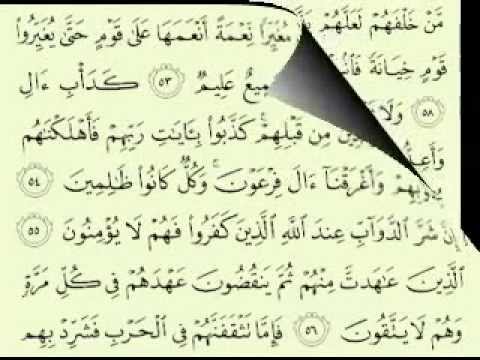 مَّنْ خَلْفَهُمْ لَعَلَّهُمْ مُغَيِّرًا نِّعْمَةً أَنْعَمَهَا عَلَىٰ قَوْمٍ حَتَّىٰ يُغَيِّرُوا۟
قَوْمٍ خِيَانَةً عَلِيمٌ ٥٣ كَدَأْبِ ءَالِ
٥٨ وَلَا مِن قَبْلِهِمْ ۚ كَذَّبُوا۟ بِـَٔايَٰتِ رَبِّهِمْ فَأَهْلَكْنَٰهُم
وَأَغْرَقْنَآ ءَالَ فِرْعَوْنَ ۚ وَكُلٌّ كَانُوا۟ ظَٰلِمِينَ ٥٤
إِنَّ شَرَّ ٱلدَّوَآبِّ عِندَ ٱللَّهِ ٱلَّذِينَ كَفَرُوا۟ فَهُمْ لَا يُؤْمِنُونَ ٥٥
ٱلَّذِينَ عَٰهَدتَّ مِنْهُمْ ثُمَّ يَنقُضُونَ عَهْدَهُمْ فِى كُلِّ مَرَّةٍ
وَهُمْ لَا يَتَّقُونَ ٥٦ فَإِمَّا تَثْقَفَنَّهُمْ فِى ٱلْحَرْبِ فَشَرِّدْ بِهِم